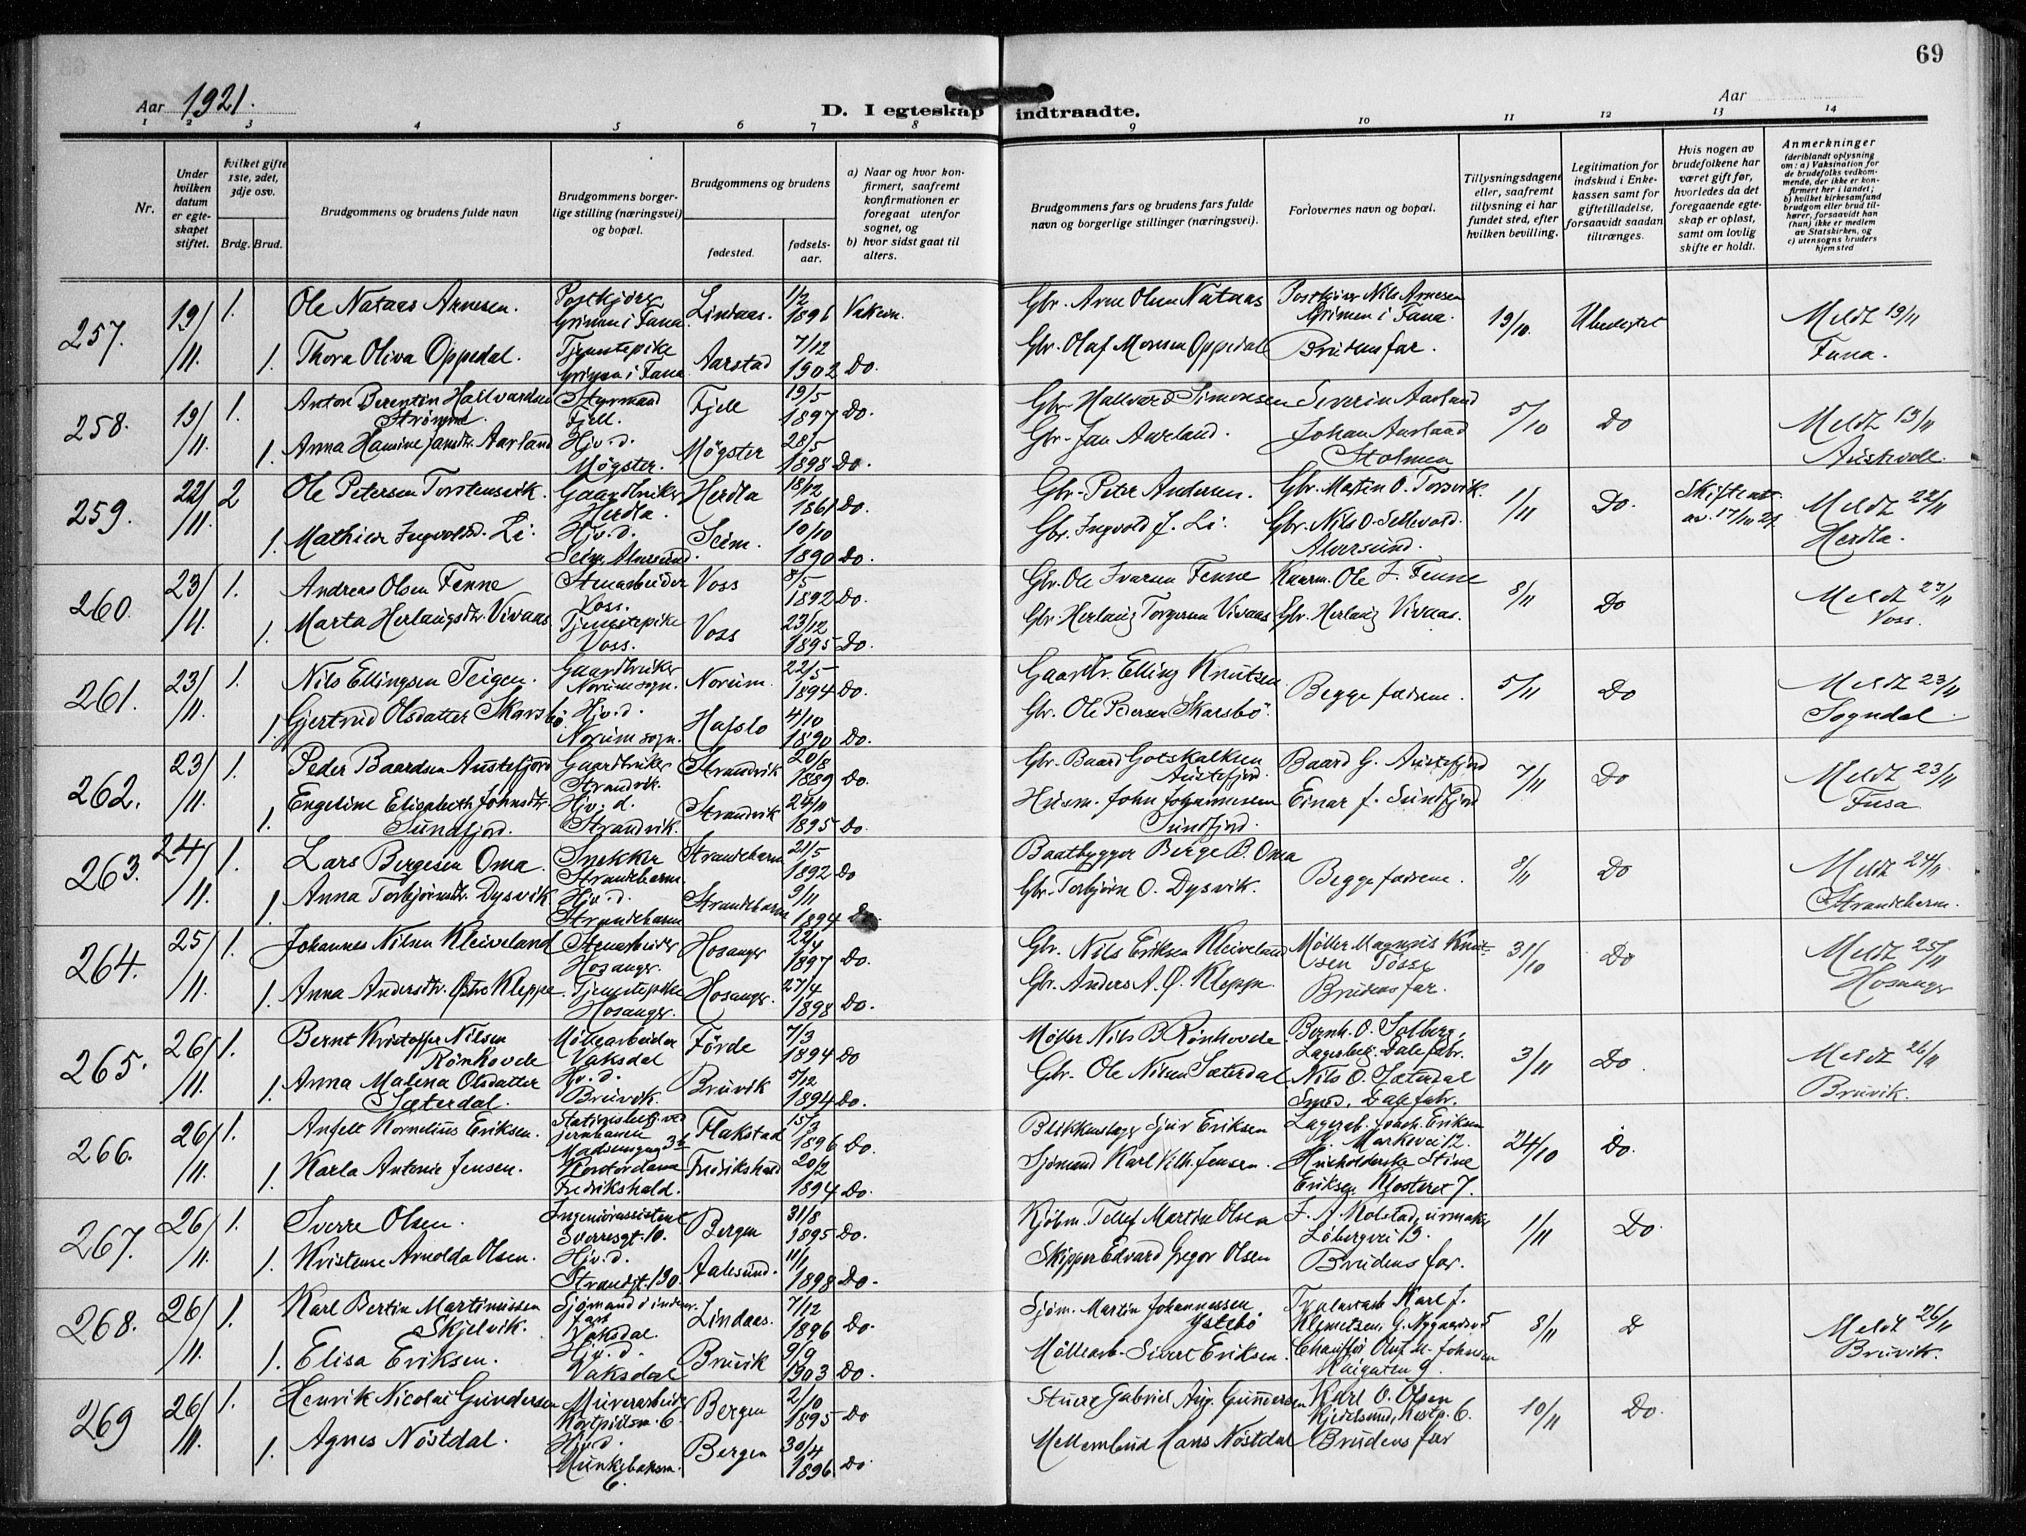 69
Aar 1921.
Aar
D. I egteskap indtraadte.
1 2 3 4 5 6 7 8 9 10 11 12 13 14
Nr.
Under hvilken datum er egteskapet stiftet.
Hvilket gifte 1ste, 2det, 3dje osv.
Brdg. Brud.
Brudgommens og brudens fulde navn
Brudgommens borgerlige stilling (næringsvei) og bopæl.
Brudgommens og brudens
fødested.
fødselsaar.
a) Naar og hvor konfirmert, saafremt konfirmationen er foregaat utenfor sognet, og
b) hvor sidst gaat til alters.
Brudgommens fars og brudens fars fulde navn og borgerlige stillinger (næringsvei).
Forlovernes navn og bopæl.
Tillysningsdagene eller, saafremt tillysning ei har fundet sted, efter hvilken bevilling.
Legitimation for indskud i Enkekassen samt for giftetilladelse, forsaavidt saadan tiltrænges.
Hvis nogen av brudefolkene har været gift før, hvorledes da det foregaaende egteskap er opløst, samt om lovlig skifte er holdt.
Anmerkninger
(deriblandt oplysning om: a) Vaksination for de brudefolks vedkommende, der ikke er konfirmert her i landet; b) hvilket kirkesamfund brudgom eller brud tilhører, forsaavidt han (hun) ikke er medlem av Statskirken, og c) utensogns bruders hjemsted
257. 19/11. 1. Ole Nataas Arnesen. Postkjører Grimen i Fana. Lindaas. 1/2 1896 Gbr. Arne Olsen Nataas Postkjører Nils Arnesen Grimen i Fana. 19/10. Ubeviset Meldt 19/11 Fana.
1. Thora Oliva Oppedal. Tjenestepike Grimen i Fana Aarstad 7/12 1902 Do. Gbr. Olaf Monsen Oppedal Brudens far.
258. 19/11. 1. Anton Berentin Hallvardsen Strømme. Styrmand Fjell. Fjell 19/5 1897 Do. Gbr. Hallvard Simonsen Severin Aarland 5/10 Do Meldt 19/11 Austevoll.
1. Anna Hansine Jansdtr. Aarland Hjv. d. Møgster. Møgster 28/5 1898 Do. Gbr. Jan Aareland. Johan Aarland Stolmen
259. 22/11. 2 Ole Petersen Torstensvik. Gaardbruker Herdla. Herdla 18/12 1861 Do. Gbr. Peter Andersen. Gbr. Martin O. Torsvik. 1/11 Do. Skifteatt. av. 17/10 21 Meldt 22/11 Herdla.
1. Mathea Ingvoldsd. Li. Hjv. d. Seim. 10/10 1890 Do. Gbr. Ingvold J. Li. Gbr. Nils O. Sellevold. Alversund.
260. 23/11. 1. Andreas Olsen Fenne Stenarbeider Voss. Voss 8/5 1892 Do. Gbr. Ole Ivarsen Fenne Kaarm. Ole J. Fenne 8/11 Do Meldt 23/11 Voss.
1. Marta Herlaugsdtr. Vivaas Tjenestepike Voss. Voss 23/12 1895 Do. Gbr. Herlaug Torgersen Vivaas Gbr. Herlaug Vivaas.
261. 23/11. 1. Nils Ellingsen Teigen. Gaardbruker Norum sogn. Norum. 22/5 1894 Do. Gaardbr. Elling Knutsen Begge fædrene. 5/11 Do Meldt 23/11 Sogndal
1. Gjertrud Olsdatter Skarsbø. Hjv. d. Norum sogn. Hafslo 4/10 1890 Do. Gbr. Ole Pedersen Skarsbø.
262. 23/11. 1. Peder Baardsen Austefjord Gaardbruker Strandvik. Strandvik 20/8 1889 Do. Gbr. Baard Gotskalksen Austefjord. Baard G. Austefjord 7/11 Do Meldt 23/11 Fusa
1. Engeline Elisabeth Johnsdtr. Sundfjord. Hjv. d. Strandvik. Strandvik 24/11 1895 Do. Husm. John Johannessen Sundfjord. Einar J. Sundfjord
263. 24/11. 1. Lars Bergesen Oma. Snekker Strandebarm. Strandebarm 21/5 1892 Do Baatbygger Berge B. Oma Begge fædrene. 8/11 Do Meldt 24/11. Strandebarm.
1. Anna Torbjørnsdtr. Dysvik Hjv. d. Strandebarm Strandebarm 9/11 1894 Do. Gbr. Torbjørn O. Dysvik.
264. 25/11. 1. Johannes Nilsen Kleiveland Stenarbeider Hosanger. Hosanger 22/4 1897 Do. Gbr. Nils Eriksen Kleiveland Møller Magnus Knutsen Tosse 31/10 Do Meldt 25/11 Hosanger
1. Anna Andersdtr. Østre Kleppe. Tjenestepike Hosanger. Hosanger. 27/4 1898 Do. Gbr. Anders A. Ø. Kleppe. Brudens far.
265. 26/11. 1. Bernt Kristoffer Nilsen Rønhovde Møllearbeider Vaksdal Førde 7/3 1894 Do Møller Nils B Rønhovde. Bernh. O. Solberg, Lagerbetj. Dale fabr. 3/11 Do Meldt 26/11 Bruvik.
1. Anna Malena Olsdatter Sæterdal. Hv. d. Bruvik. Bruvik 5/12 1894 Do. Gbr. Ole Nilsen Sæterdal Nils O. Sæterdal Smed, Dale fabr.
266. 26/11. 1. Anfelt Kornelius Eriksen. Stationsbetj. ved jernbanen Flakstad 15/3 1896 Do. Blikkenslager Sjur Eriksen Lagerb. Joach. Eriksen Markevei 12. 24/10 Do.
1. Karla Antonie Jensen. Fredrikshald. Fredrikshald 20/2 1894 Do. Sjømand Karl Vilh. Jensen. Husholderske Stine Eriksen, Klosteret 7.
267. 26/11. 1. Sverre Olsen. Ingeniørassistent Sverresgt. 10. Bergen 31/8 1895 Do. Kjøbm. Tellef Martin Olsen F. A. Kolstad, urmaker Løbergvei 19. 1/11 Do.
1. Kristense Arnolda Olsen. Hjv. d. Strandgt. 190. Aalesund. 11/1 1898 Do. Skipper Edvard Gregor Olsen Brudens far.
268. 26/11. 1. Karl Bertin Martinussen Skjelvik. Sjømand i indenr. fart Vaksdal. Lindaas. 7/12 1896 Do. Sjøm. Martin Johannessen Ystebø Karl J. Klemetsen, G. Nygaardsv 5 8/11 D Meldt 26/11 Bruvik.
1. Elisa Eriksen. Hjv. d. Vaksdal Bruvik 9/9 1903 Do. Møllearb. Sivert Eriksen. Chauffør Oluf H. Johnsen Haugaten 9.
269 26/11. 1. Henrik Nicolai Gundersen Murerarbeider 6. Bergen 2/10 1895 Do Stuer Gabriel Aug. Gundersen Karl O. Olsen 10/11 Do.
1. Agnes Nøstdal. Hjv. d. Munkebaksm. 6. Bergen 30/4 1896 Do. Hans Nøstdal Brudens far